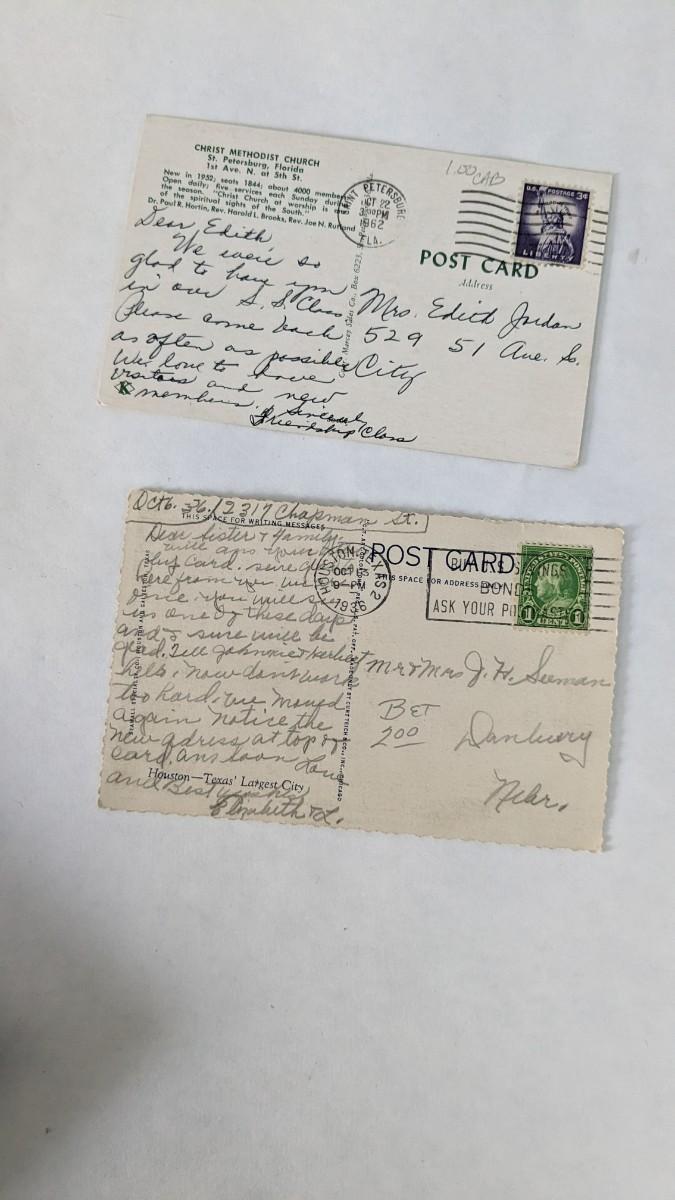 CHRIST METHODIST CHURCH
St. Petersburg, Florida
1st Ave. N. at 5th St.
New in 1952; seats 1844; about 4000 members
Open daily; five services each Sunday during
the season. "Christ Church at worship is one
of the spiritual sights of the South."
Dr. Paul R. Hortin, Rev. Harold L. Brooks, Rev. Joe N. Rutland
SAINT PETERSBURG
OCT 22
PM
1962
FLA.
1.00 CAB
U.S. POSTAGE 3¢
LIBERTY
POST CARD
Address
Dear Edith,
We were so
glad to have you
in our S. S. Class
Please come back
as often as possible
We love to have
visitors and new
members.
Sincerely
Friendship Class
K
Mrs. Edith Jordan
529 51 Ave. So.
City
Oct 6. 36. 2317 Chapman St.
THIS SPACE FOR WRITING MESSAGES
Dear Sister & Family.
will ans your
card. sure
here from you
once. you will
us one of these days
and I sure will be
glad. Tell Johnnie & Herbert
hello. now dont work
too hard. we moved
again notice the
new adress at top of
card. ans soon Love
and Best wishes
Elizabeth & L.
Houston—Texas' Largest City
HOUSTON, TEXAS 2
OCT
9 PM
1936
POST CARD
THIS SPACE FOR ADDRESS ONLY
BUY U.S. SAVINGS
BONDS
ASK YOUR POSTMASTER
UNITED STATES POSTAGE
1 CENT 1
Mr & Mrs J. H. Seeman
BET
2.00
Danbury
Nebr.